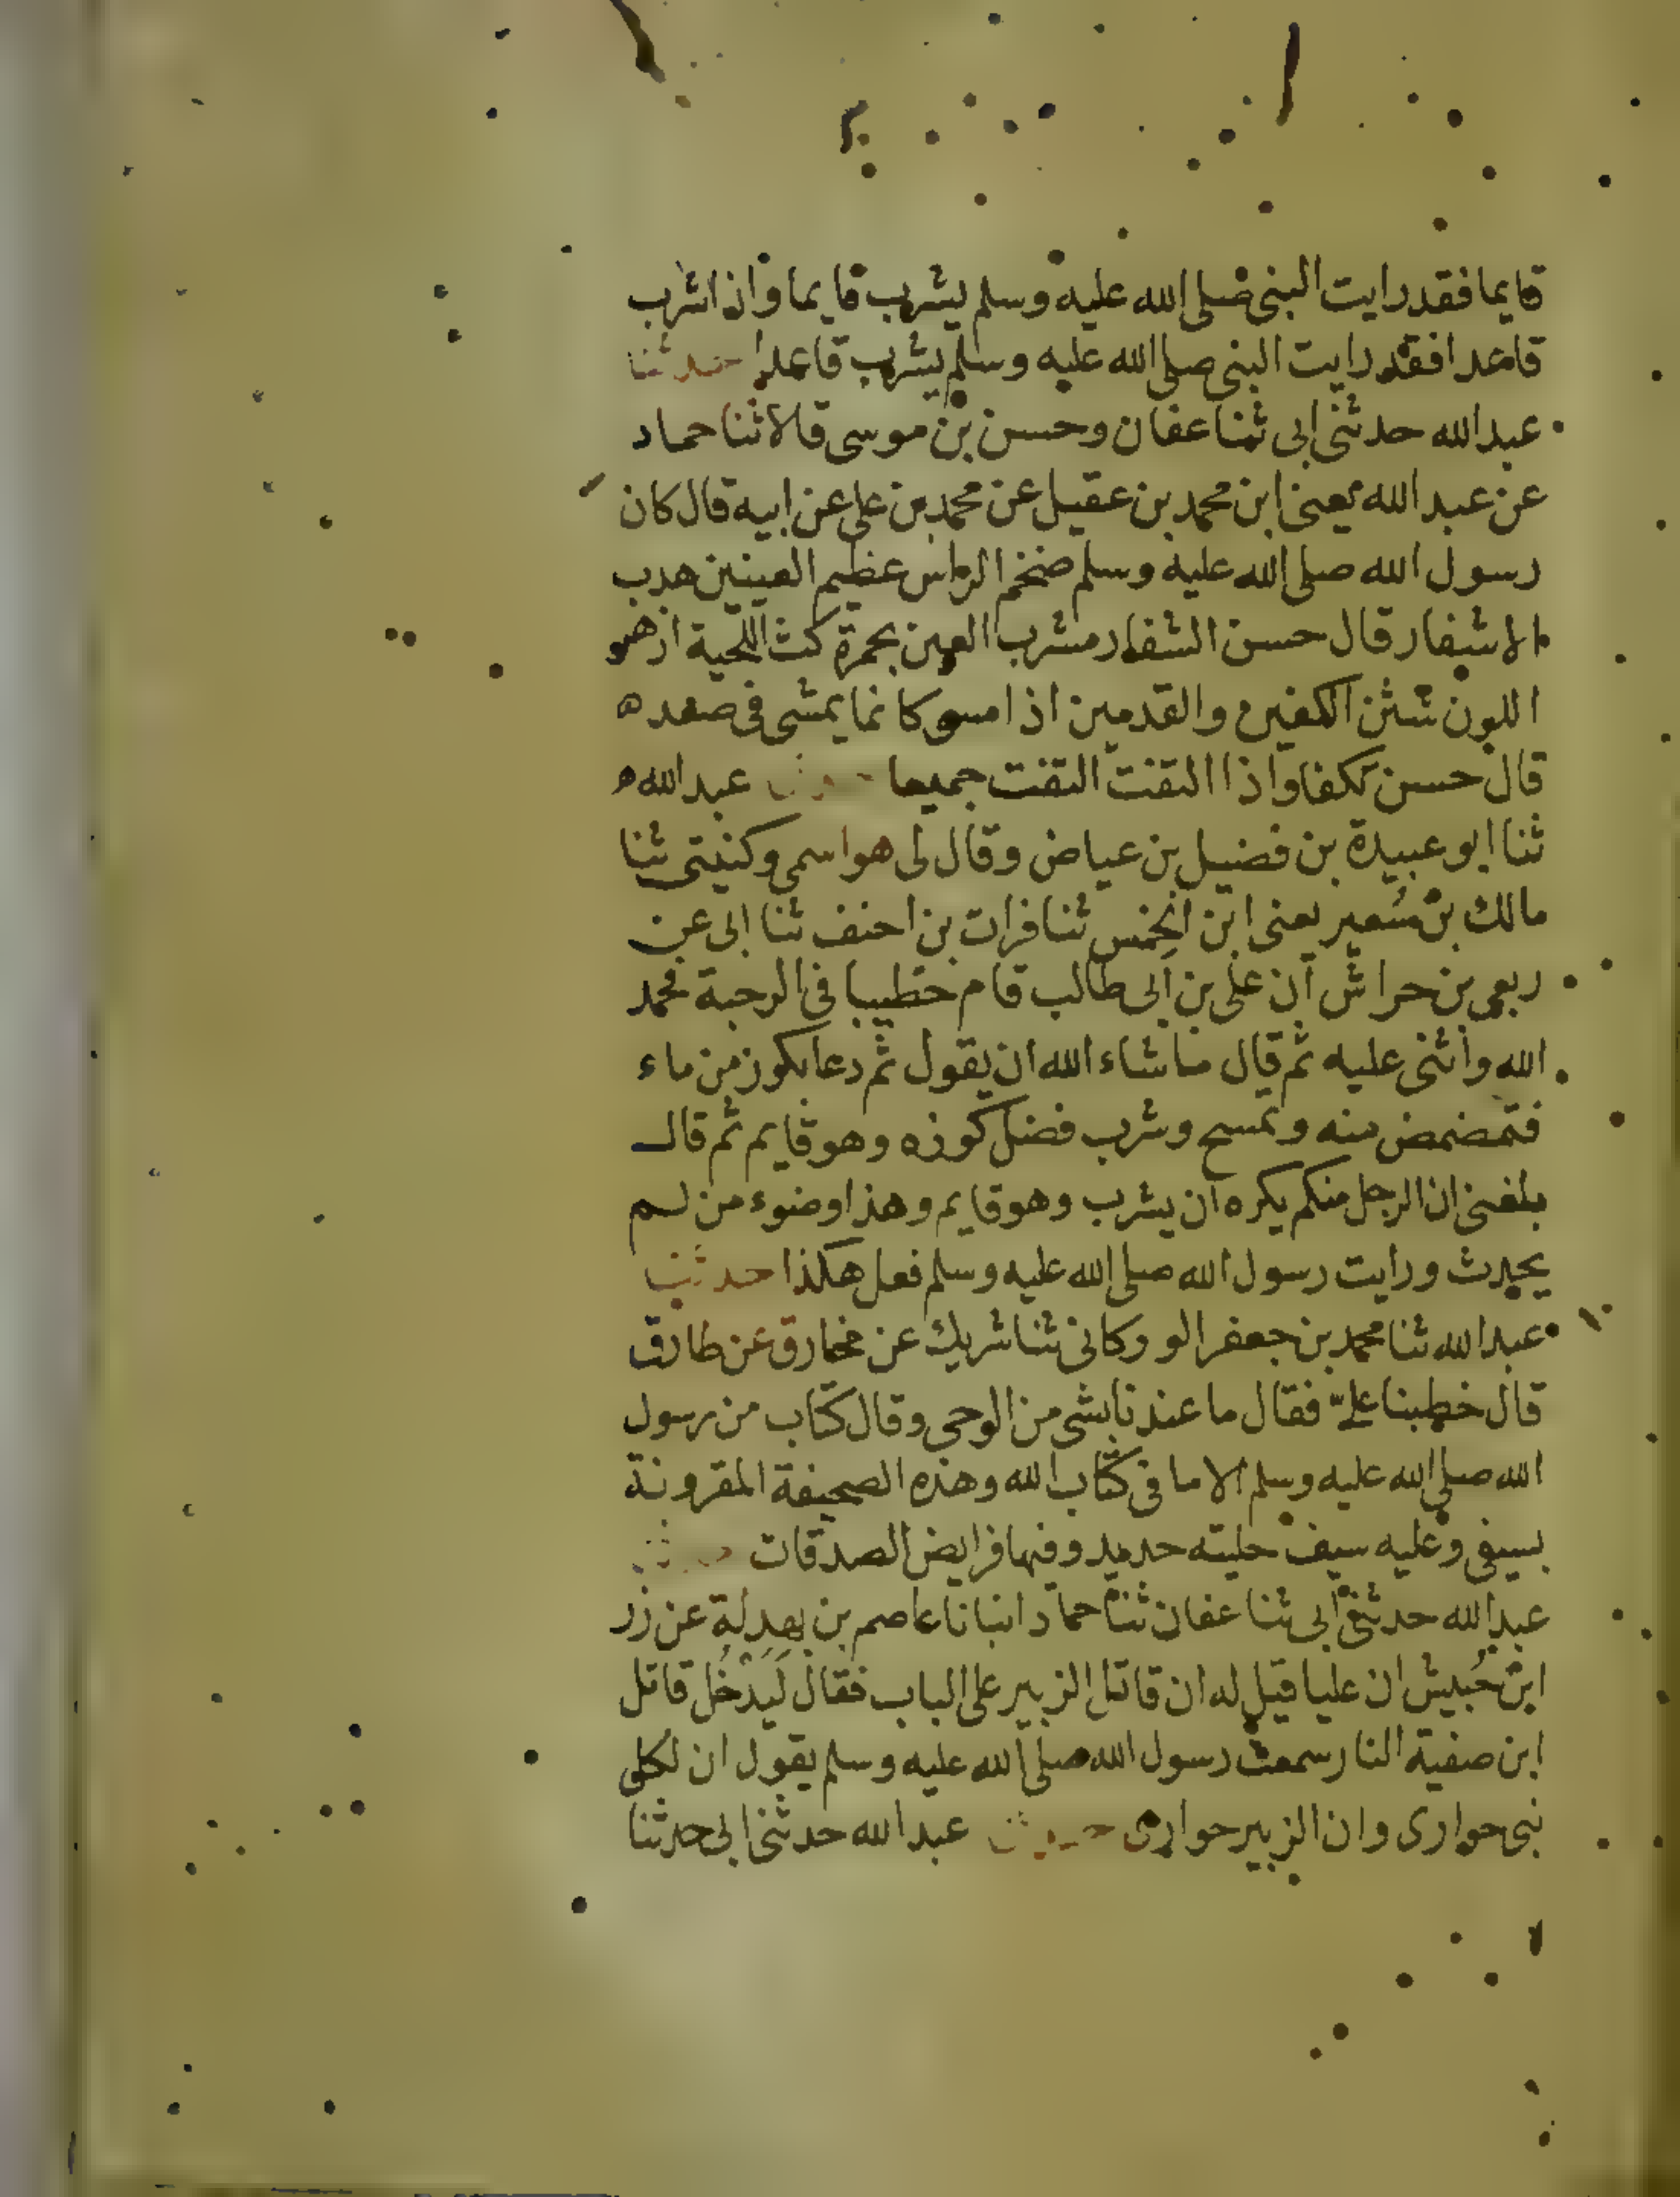 قايما فقد رايت النبى صلى الله عليه وسلم يشرب قايما وان اشرب
قاعدا فقد رايت النبى صلى الله عليه وسلم يشرب قاعدا حدثنا
عبد الله حدثنى ابى ثنا عفان وحسن بن موسى قالا ثنا حماد
عن عبد الله يعنى ابن محمد بن عقيل عن محمد بن على عن ابيه قال كان
رسول الله صلى الله عليه وسلم ضخم الراس عظيم العينين هدب
الاشفار قال حسن الشفار مشرب العين بحمرة كث اللحية ازهر
اللون شثن الكفين والقدمين اذا مشى كانما يمشى فى صعد ه
قال حسن تكفا واذا التفت التفت جميعا حدثنا عبد الله ه
ثنا ابو عبيدة بن فضيل بن عياض وقال لى هو اسمى وكنيتى ثنا
مالك بن سُعير يعنى ابن الخِمس ثنا فرات بن احنف ثنا ابى عن
ربعى بن حراش ان على بن ابى طالب قام خطيبا فى الرحبة فحمد
الله واثنى عليه ثم قال ما شاء الله ان يقول ثم دعا بكوز من ماء
فتمضمض منه وتمسح وشرب فضل كوزه وهو قايم ثم قال
بلغنى ان الرجل منكم يكره ان يشرب وهو قايم وهذا وضوء من لم
يحدث ورايت رسول الله صلى الله عليه وسلم فعل هكذا حدثنا
عبد الله ثنا محمد بن جعفر الوركانى ثنا شريك عن مخارق عن طارق
قال خطبنا علىّ فقال ما عندنا شى من الوحى وقال كتاب من رسول
الله صلى الله عليه وسلم الا ما فى كتاب الله وهذه الصحيفة المقرونة
بسيفى وعليه سيف حليته حديد وفيها فرايض الصدقات حدثنا
عبد الله حدثنى ابى ثنا عفان ثنا حماد انبانا عاصم بن بهدلة عن زر
ابن حُبيش ان عليا قيل له ان قاتل الزبير على الباب فقال لَيَدْخُل قاتل
ابن صفية النار سمعت رسول الله صلى الله عليه وسلم يقول ان لكل
نبى حوارى وان الزبير حوارى حدثنا عبد الله حدثنى ابى حدثنا